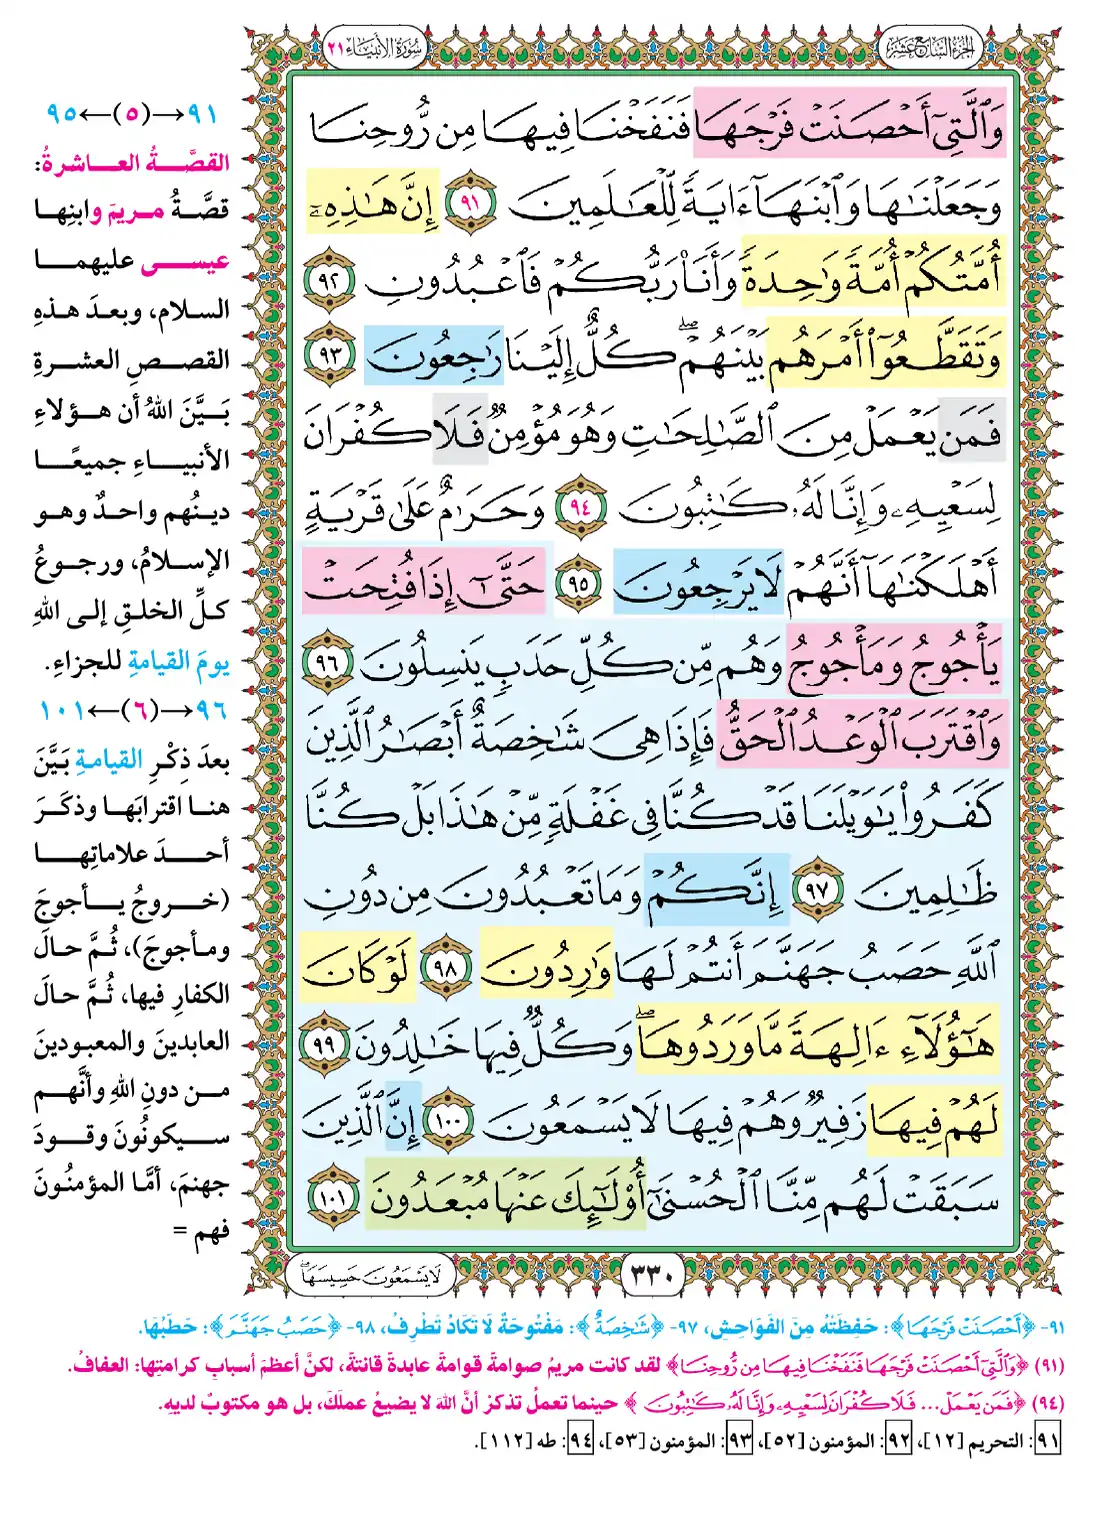 الجزء السابع عشر
سورة الأنبياء ٢١
وَٱلَّتِيٓ أَحۡصَنَتۡ فَرۡجَهَا فَنَفَخۡنَا فِيهَا مِن رُّوحِنَا
وَجَعَلۡنَٰهَا وَٱبۡنَهَآ ءَايَةٗ لِّلۡعَٰلَمِينَ ٩١ إِنَّ هَٰذِهِۦٓ
أُمَّتُكُمۡ أُمَّةٗ وَٰحِدَةٗ وَأَنَا۠ رَبُّكُمۡ فَٱعۡبُدُونِ ٩٢
وَتَقَطَّعُوٓاْ أَمۡرَهُم بَيۡنَهُمۡۖ كُلٌّ إِلَيۡنَا رَٰجِعُونَ ٩٣
فَمَن يَعۡمَلۡ مِنَ ٱلصَّٰلِحَٰتِ وَهُوَ مُؤۡمِنٞ فَلَا كُفۡرَانَ
لِسَعۡيِهِۦ وَإِنَّا لَهُۥ كَٰتِبُونَ ٩٤ وَحَرَٰمٌ عَلَىٰ قَرۡيَةٍ
أَهۡلَكۡنَٰهَآ أَنَّهُمۡ لَا يَرۡجِعُونَ ٩٥ حَتَّىٰٓ إِذَا فُتِحَتۡ
يَأۡجُوجُ وَمَأۡجُوجُ وَهُم مِّن كُلِّ حَدَبٖ يَنسِلُونَ ٩٦
وَٱقۡتَرَبَ ٱلۡوَعۡدُ ٱلۡحَقُّ فَإِذَا هِيَ شَٰخِصَةٌ أَبۡصَٰرُ ٱلَّذِينَ
كَفَرُواْ يَٰوَيۡلَنَا قَدۡ كُنَّا فِي غَفۡلَةٖ مِّنۡ هَٰذَا بَلۡ كُنَّا
ظَٰلِمِينَ ٩٧ إِنَّكُمۡ وَمَا تَعۡبُدُونَ مِن دُونِ
ٱللَّهِ حَصَبُ جَهَنَّمَ أَنتُمۡ لَهَا وَٰرِدُونَ ٩٨ لَوۡ كَانَ
هَٰٓؤُلَآءِ ءَالِهَةٗ مَّا وَرَدُوهَاۖ وَكُلّٞ فِيهَا خَٰلِدُونَ ٩٩
لَهُمۡ فِيهَا زَفِيرٞ وَهُمۡ فِيهَا لَا يَسۡمَعُونَ ١٠٠ إِنَّ ٱلَّذِينَ
سَبَقَتۡ لَهُم مِّنَّا ٱلۡحُسۡنَىٰٓ أُوْلَٰٓئِكَ عَنۡهَا مُبۡعَدُونَ ١٠١
٣٣٠
لَا يَسۡمَعُونَ حَسِيسَهَاۖ
٩١→(٥)←٩٥
القصَّةُ العاشرةُ:
قصَّةُ مريمَ وابنِها
عيسى عليهما
السلام، وبعدَ هذهِ
القصصِ العشرةِ
بَيَّنَ اللهُ أن هؤلاءِ
الأنبياءِ جميعًا
دينُهم واحدٌ وهو
الإسلامُ، ورجوعُ
كلِّ الخلقِ إلى اللهِ
يومَ القيامةِ للجزاءِ.
٩٦→(٦)←١٠١
بعدَ ذِكْرِ القيامةِ بَيَّنَ
هنا اقترابَها وذكَرَ
أحدَ علاماتِها
(خروجُ يأجوجَ
ومأجوجَ)، ثُمَّ حالَ
الكفارِ فيها، ثُمَّ حالَ
العابدينَ والمعبودينَ
من دونِ اللهِ وأنَّهم
سيكونُونَ وقودَ
جهنمَ، أمَّا المؤمنُونَ
فهم =
٩١- ﴿أَحۡصَنَتۡ فَرۡجَهَا﴾: حَفِظَتْهُ مِنَ الفَوَاحِشِ، ٩٧- ﴿شَٰخِصَةٌ﴾: مَفْتُوحَةٌ لَا تَكَادُ تَطْرِفُ، ٩٨- ﴿حَصَبُ جَهَنَّمَ﴾: حَطَبُهَا.
(٩١) ﴿وَٱلَّتِيٓ أَحۡصَنَتۡ فَرۡجَهَا فَنَفَخۡنَا فِيهَا مِن رُّوحِنَا﴾ لقد كانت مريمُ صوامةً قوامةً عابدةً قانتةً، لكنَّ أعظمَ أسبابِ كرامتِها: العفافُ.
(٩٤) ﴿فَمَن يَعۡمَلۡ... فَلَا كُفۡرَانَ لِسَعۡيِهِۦ وَإِنَّا لَهُۥ كَٰتِبُونَ﴾ حينما تعملُ تذكرْ أنَّ اللهَ لا يضيعُ عملَكَ، بل هو مكتوبٌ لديهِ.
٩١: التحريم [١٢]، ٩٢: المؤمنون [٥٢]، ٩٣: المؤمنون [٥٣]، ٩٤: طه [١١٢].